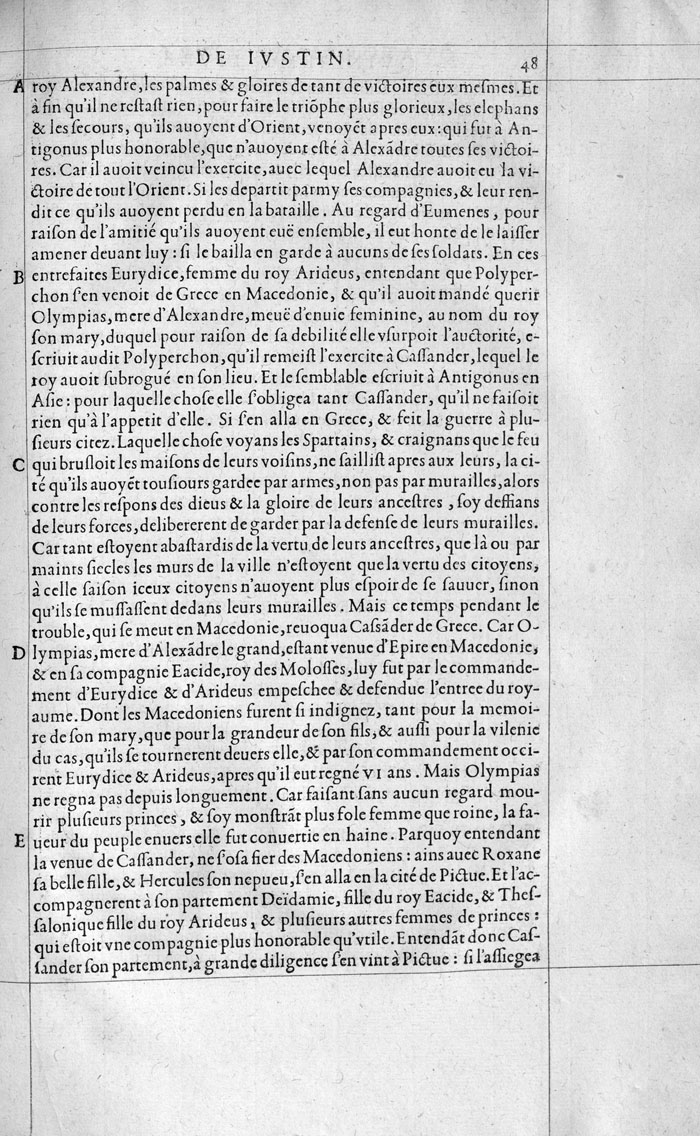 DE IVSTIN. 48
A roy Alexandre, les palmes & gloires de tant de victoires eux meſmes. Et
à fin qu'il ne reſtaſt rien, pour faire le triõphe plus glorieux, les elephans
& les ſecours, qu'ils auoyent d'Orient, venoyẽt apres eux: qui fut à An-
tigonus plus honorable, que n'auoyent eſté à Alexãdre toutes ſes victoi-
res. Car il auoit veincu l'exercite, auec lequel Alexandre auoit eu la vi-
ctoire de tout l'Orient. Si les departit parmy ſes compagnies, & leur ren-
dit ce qu'ils auoyent perdu en la bataille. Au regard d'Eumenes, pour
raiſon de l'amitié qu'ils auoyent euë enſemble, il eut honte de le laiſſer
amener deuant luy: ſi le bailla en garde à aucuns de ſes ſoldats. En ces
B entrefaites Eurydice, femme du roy Arideus, entendant que Polyper-
chon s'en venoit de Grece en Macedonie, & qu'il auoit mandé querir
Olympias, mere d'Alexandre, meuë d'enuie feminine, au nom du roy
ſon mary, duquel pour raiſon de ſa debilité elle vſurpoit l'auctorité, e-
ſcriuit audit Polyperchon, qu'il remeiſt l'exercite à Caſſander, lequel le
roy auoit ſubrogué en ſon lieu. Et le ſemblable eſcriuit à Antigonus en
Aſie: pour laquelle choſe elle ſ'obligea tant Caſſander, qu'il ne faiſoit
rien qu'à l'appetit d'elle. Si ſ'en alla en Grece, & feit la guerre à plu-
ſieurs citez. Laquelle choſe voyans les Spartains, & craignans que le feu
C qui bruſloit les maiſons de leurs voiſins, ne failliſt apres aux leurs, la ci-
té qu'ils auoyẽt touſiours gardee par armes, non pas par murailles, alors
contre les reſpons des dieus & la gloire de leurs anceſtres, ſoy deffians
de leurs forces, delibererent de garder par la defenſe de leurs murailles.
Car tant eſtoyent abaſtardis de la vertu de leurs anceſtres, que là ou par
maints ſiecles les murs de la ville n'eſtoyent que la vertu des citoyens,
à celle ſaiſon iceux citoyens n'auoyent plus eſpoir de ſe ſauuer, ſinon
qu'ils ſe muſſaſſent dedans leurs murailles. Mais ce temps pendant le
trouble, qui ſe meut en Macedonie, reuoqua Caſsãder de Grece. Car O-
D lympias, mere d'Alexãdre le grand, eſtant venue d'Epire en Macedonie,
& en ſa compagnie Eacide, roy des Moloſſes, luy fut par le commande-
ment d'Eurydice & d'Arideus empeſchee & defendue l'entree du roy-
aume. Dont les Macedoniens furent ſi indignez, tant pour la memoi-
re de ſon mary, que pour la grandeur de ſon fils, & auſſi pour la vilenie
du cas, qu'ils ſe tournerent deuers elle, & par ſon commandement occi-
rent Eurydice & Arideus, apres qu'il eut regné VI ans. Mais Olympias
ne regna pas depuis longuement. Car faiſant ſans aucun regard mou-
rir pluſieurs princes, & ſoy monſtrãt plus fole femme que roine, la fa-
E ueur du peuple enuers elle fut conuertie en haine. Parquoy entendant
la venue de Caſſander, ne ſ'oſa fier des Macedoniens: ains auec Roxane
ſa belle fille, & Hercules ſon nepueu, ſ'en alla en la cité de Pictue. Et l'ac-
compagnerent à ſon partement Deïdamie, fille du roy Eacide, & Theſ-
ſalonique fille du roy Arideus, & pluſieurs autres femmes de princes:
qui eſtoit vne compagnie plus honorable qu'vtile. Entendãt donc Caſ-
ſander ſon partement, à grande diligence ſ'en vint à Pictue: ſi l'aſſiegea